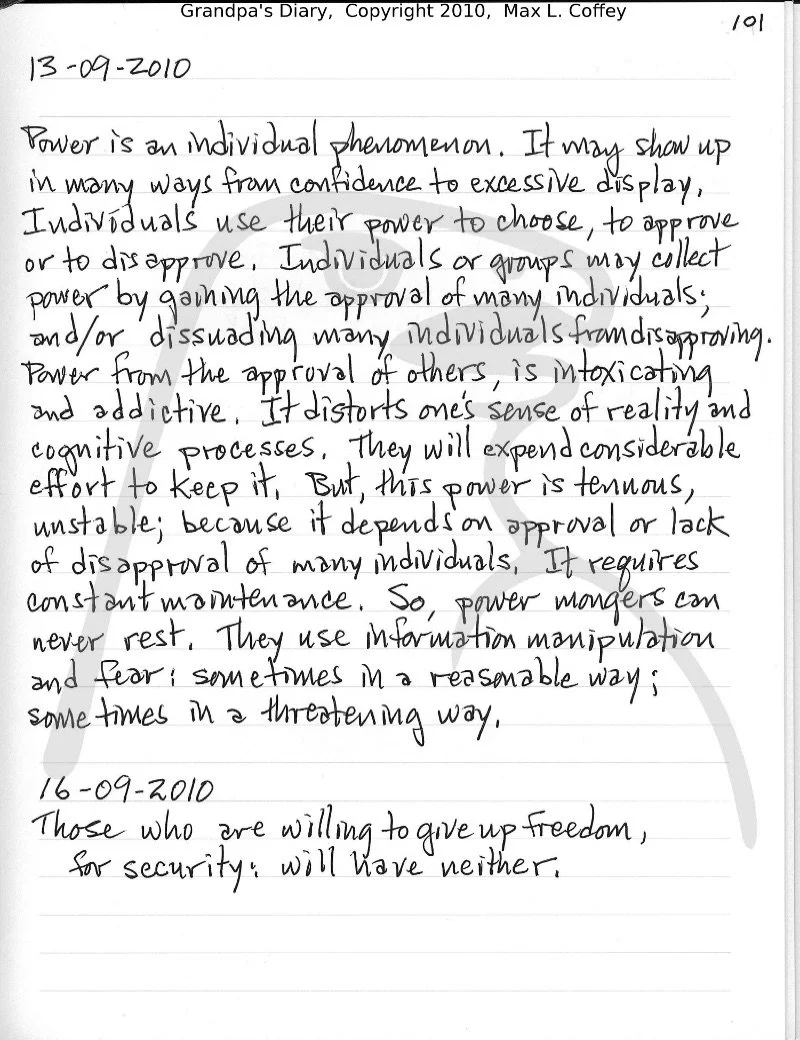 Grandpa's Diary, Copyright 2010, Max L. Coffey
101
13-09-2010
Power is an individual phenomenon. It may show up
in many ways from confidence to excessive display.
Individuals use their power to choose, to approve
or to disapprove. Individuals or groups may collect
power by gaining the approval of many individuals;
and/or dissuading many individuals from disapproving.
Power from the approval of others, is intoxicating
and addictive. It distorts one's sense of reality and
cognitive processes. They will expend considerable
effort to keep it. But, this power is tenuous,
unstable; because it depends on approval or lack
of disapproval of many individuals. It requires
constant maintenance. So, power mongers can
never rest. They use information manipulation
and fear; sometimes in a reasonable way;
sometimes in a threatening way.
16-09-2010
Those who are willing to give up freedom,
for security; will have neither.